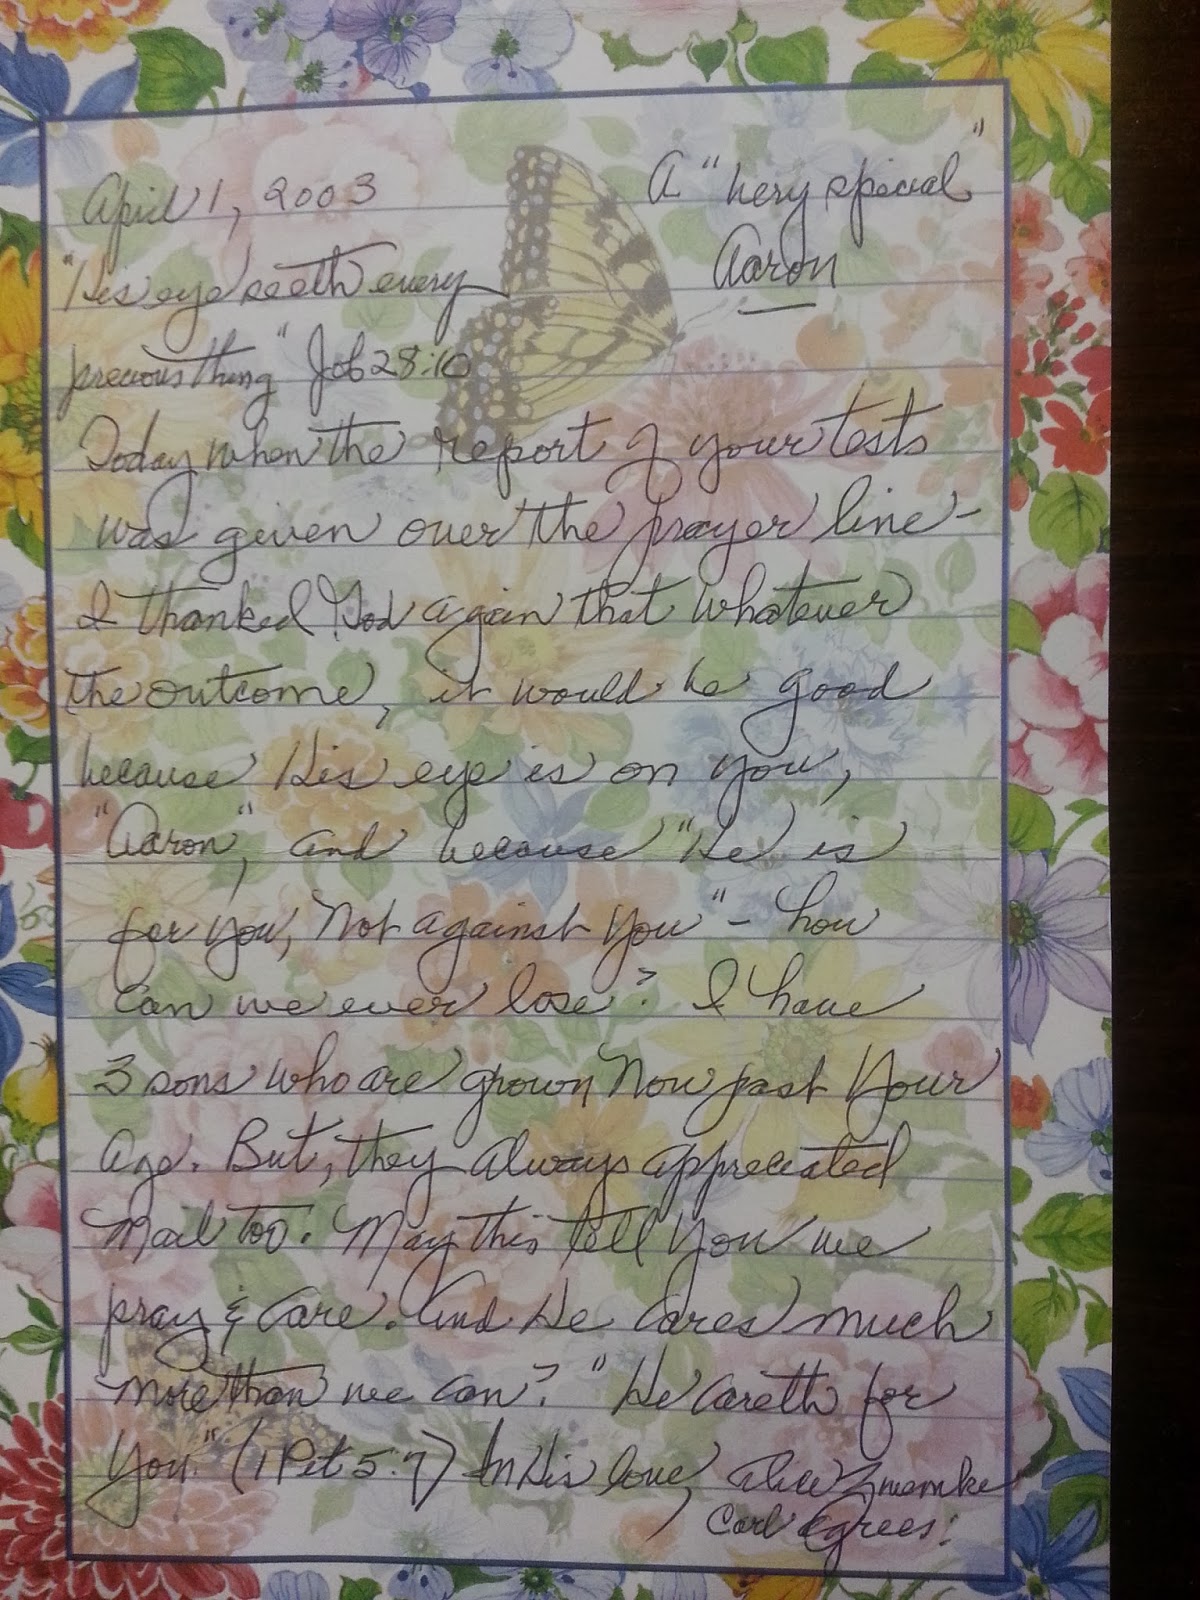 April 1, 2003
A "very special"
Aaron
"His eye seeth every
precious thing" Job 28:10
Today when the report of your tests
was given over the prayer line -
I thanked God again that whatever
the outcome, it would be good
because His eye is on you,
"Aaron", and because "He is
for you, not against you" - how
can we ever lose? I have
3 sons who are grown now past your
age. But, they always appreciated
mail too. May this tell you we
pray & care. And He cares much
more than we can? "He careth for
you." (1 Pet 5:7) In His love, Alice
Carl agrees!